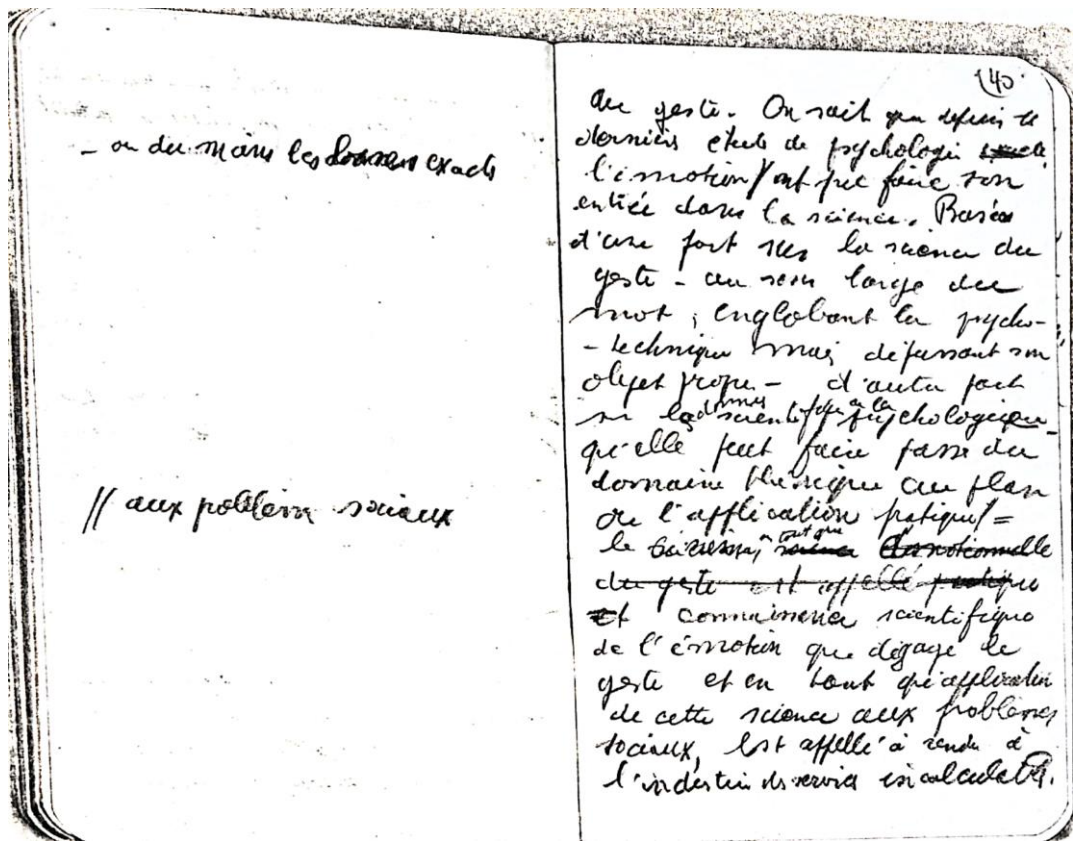 - ou du moins les données exacts
// aux problèms sociaux
(40)
du geste. On sait que depuis le
derniers etuds de psychologie
l'émotion / ont pu faire son
entrée dans la science. Basées
d'une part sur la science du
geste - au sens large du
mot, englobant la psycho-
- technique mais dépassant son
objet propre - d'autre part
sur les données scientifiques de la psychologique
qu'elle peut faire passer du
domaine théorique au plan
de l'application pratique / =
le en tant que
du geste est appellé pratique
et connaissance scientifique
de l'émotion que dégage le
geste et en tant qu'application
de cette science aux problèmes
sociaux, est appellé à rendre à
l'industrie des services incalculables.